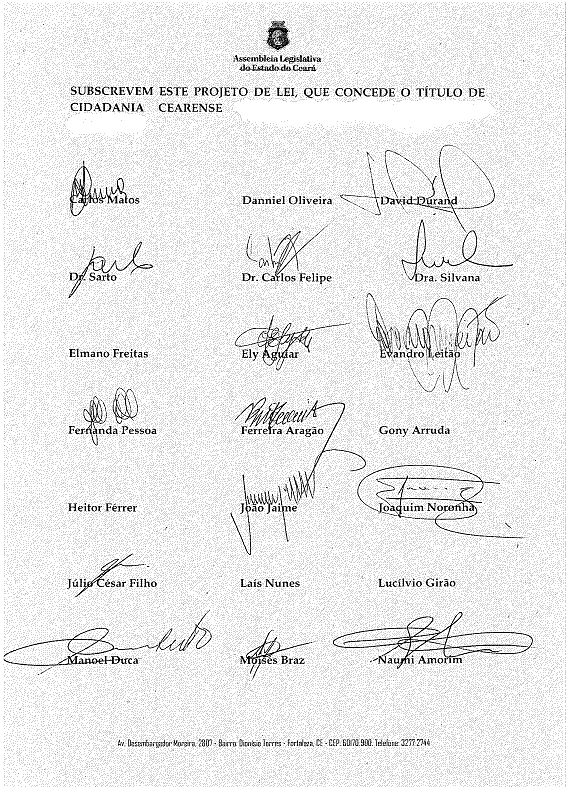 Assembleia Legislativa
do Estado do Ceará
SUBSCREVEM ESTE PROJETO DE LEI, QUE CONCEDE O TÍTULO DE
CIDADANIA CEARENSE
Carlos Matos Danniel Oliveira David Durand
Dr. Sarto Dr. Carlos Felipe Dra. Silvana
Elmano Freitas Ely Aguiar Evandro Leitão
Fernanda Pessoa Ferreira Aragão Gony Arruda
Heitor Férrer João Jaime Joaquim Noronha
Júlio César Filho Laís Nunes Lucílvio Girão
Manoel Duca Moisés Braz Naumi Amorim
Av. Desembargador Moreira, 2807 - Bairro: Dionísio Torres - Fortaleza, CE - CEP: 60170.900. Telefone: 3277.2744